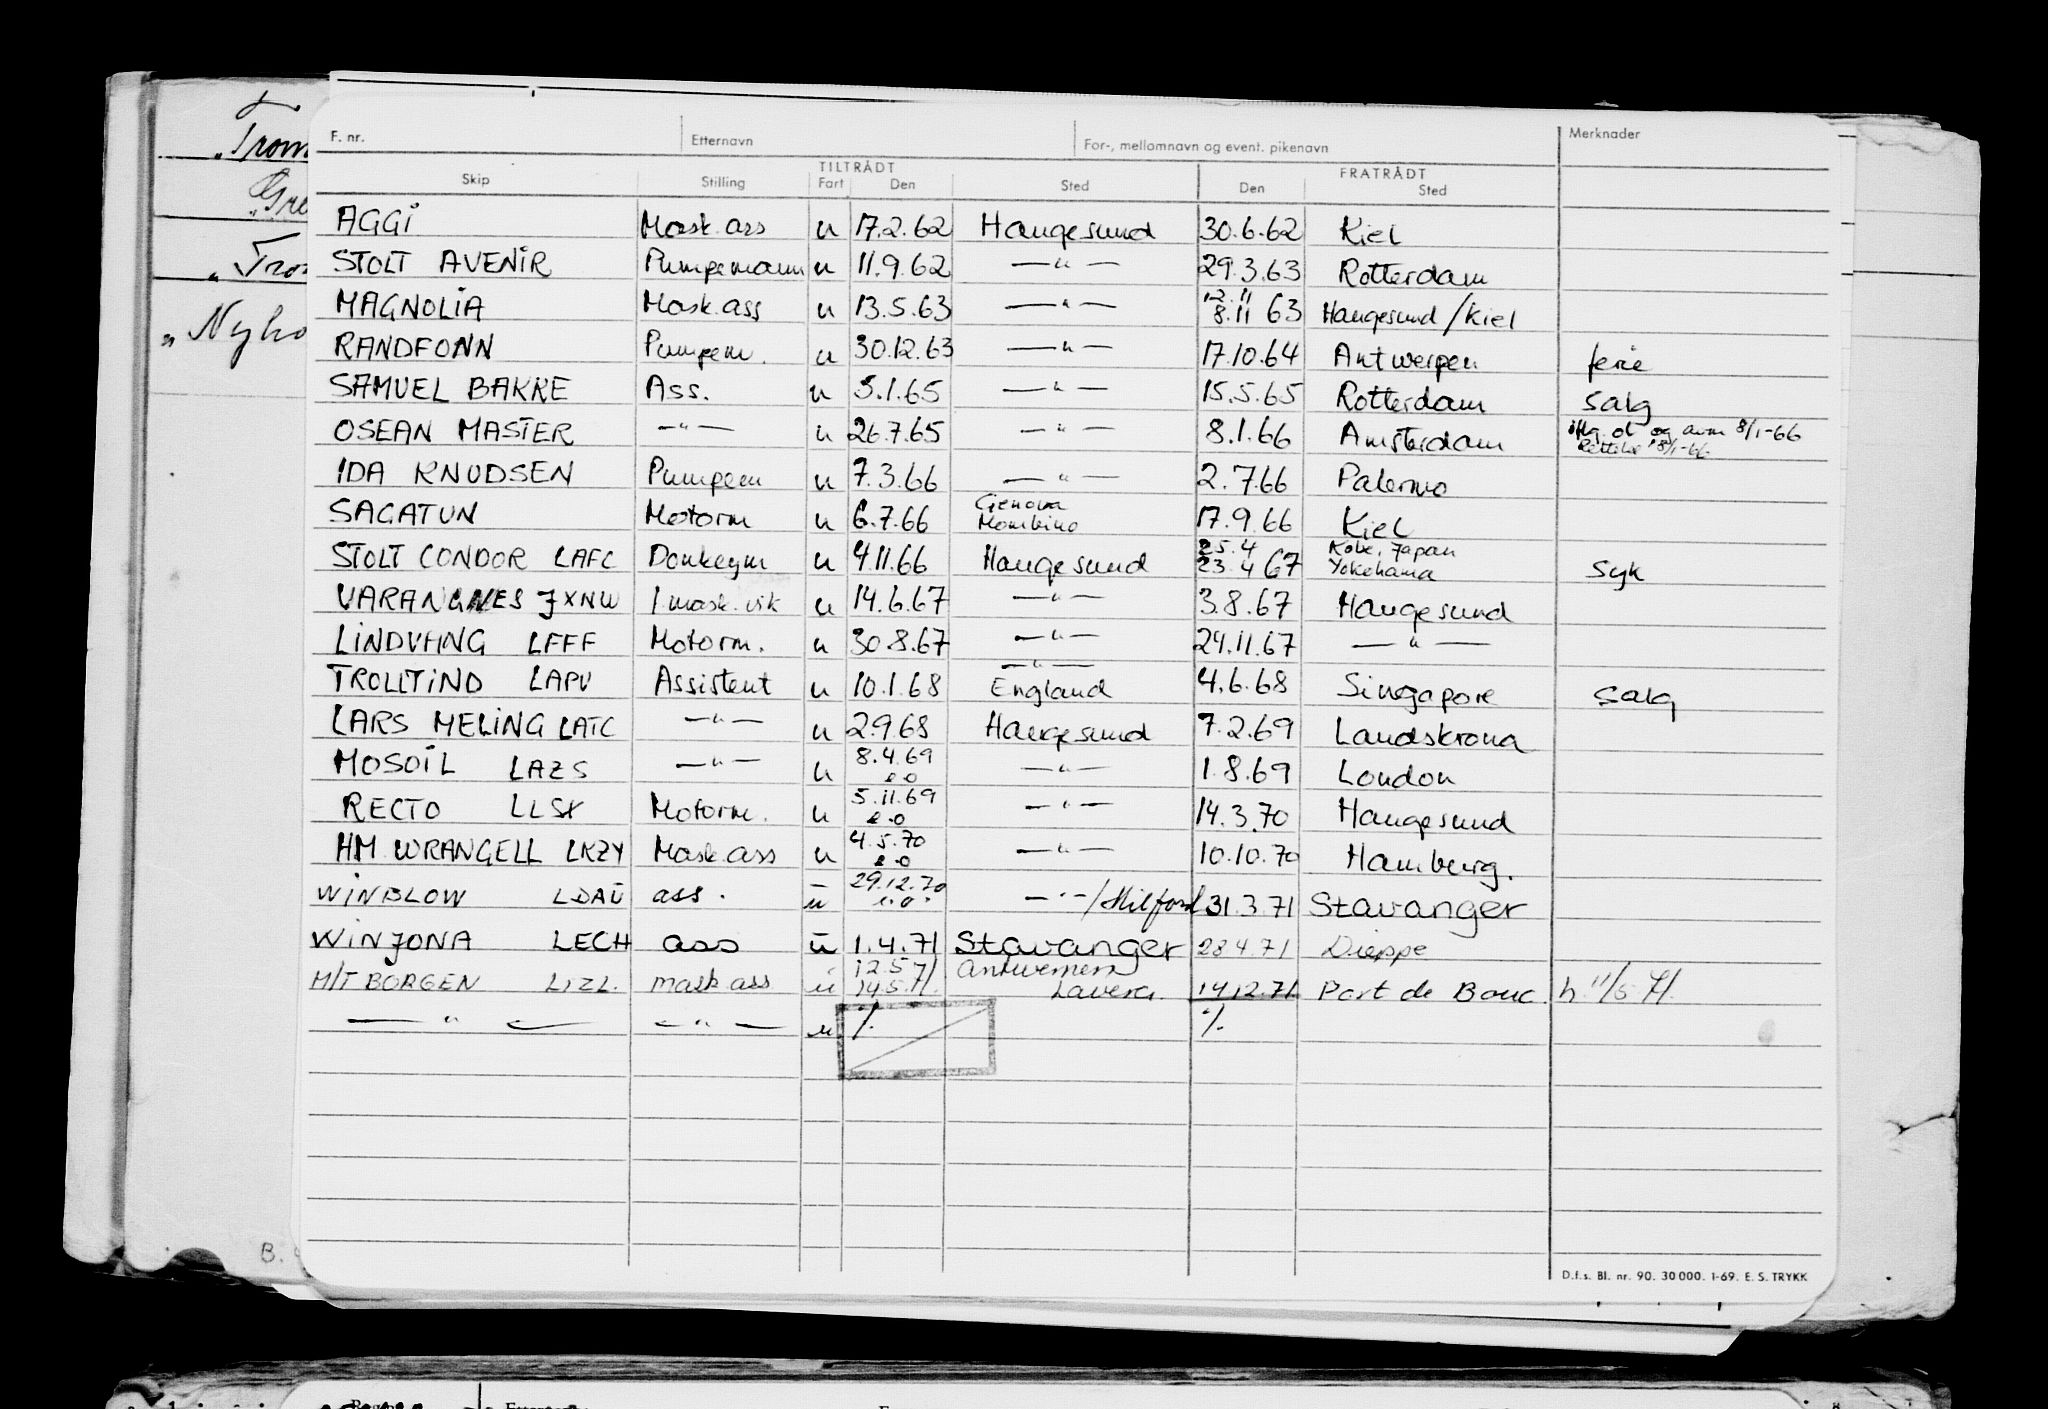 F. nr. Etternavn For-, mellomnavn og event. pikenavn Merknader
TILTRÅDT FRATRÅDT
Skip Stilling Fart Den Sted Den Sted
AGGI Mask. ass u 17.2.62 Haugesund 30.6.62 Kiel
STOLT AVENIR Pumpemann u 11.9.62 —"— 29.3.63 Rotterdam
MAGNOLIA Mask. ass u 13.5.63 —"— 12.11 8.11 63 Haugesund/Kiel
RANDFONN Pumpem. u 30.12.63 —"— 17.10.64 Antwerpen ferie
SAMUEL BAKKE Ass. u 5.1.65 —"— 15.5.65 Rotterdam salg
OSEAN MASTER —"— u 26.7.65 —"— 8.1.66 Amsterdam iflg. ot og avm 8/1-66
8/1-66
IDA KNUDSEN Pumpem u 7.3.66 —"— 2.7.66 Palermo
SAGATUN Motorm u 6.7.66 Genova 17.9.66 Kiel
STOLT CONDOR LAFC Donkeym u 4.11.66 Haugesund 25.4 23.4 67 Kobe, Japan Yokohama syk
VARANGNES JXNW 1. mask. vik u 14.6.67 —"— 3.8.67 Haugesund
LINDVANG LFFF Motorm. u 30.8.67 —"— 29.11.67 —"—
TROLLTIND LAPV Assistent u 10.1.68 —"— England 4.6.68 Singapore salg
LARS MELING LATC —"— u 2.9.68 Haugesund 7.2.69 Landskrona
MOSOIL LAZS —"— u 8.4.69 e.o —"— 1.8.69 London
RECTO LLSX Motorm. u 5.11.69 e.o —"— 14.3.70 Haugesund
HM WRANGELL LKZY Mask. ass u 4.5.70 e.o —"— 10.10.70 Hamburg.
WINBLOW LDAU ass. u 29.12.70 e.o. —"—/Milford 31.3.71 Stavanger
WINJONA LECH ass u 1.4.71 Stavanger 28.4.71 Dieppe
M/T BORGEN LIZL. mask ass u 12.5 14.5.71. Antwerpen Lavera. 14.12.71 Port de Bouc h 11/5 71.
—"— —"— u %. %.
D.f.s. Bl. nr. 90. 30 000. 1-69. E. S. TRYKK
„ Nyho
B.